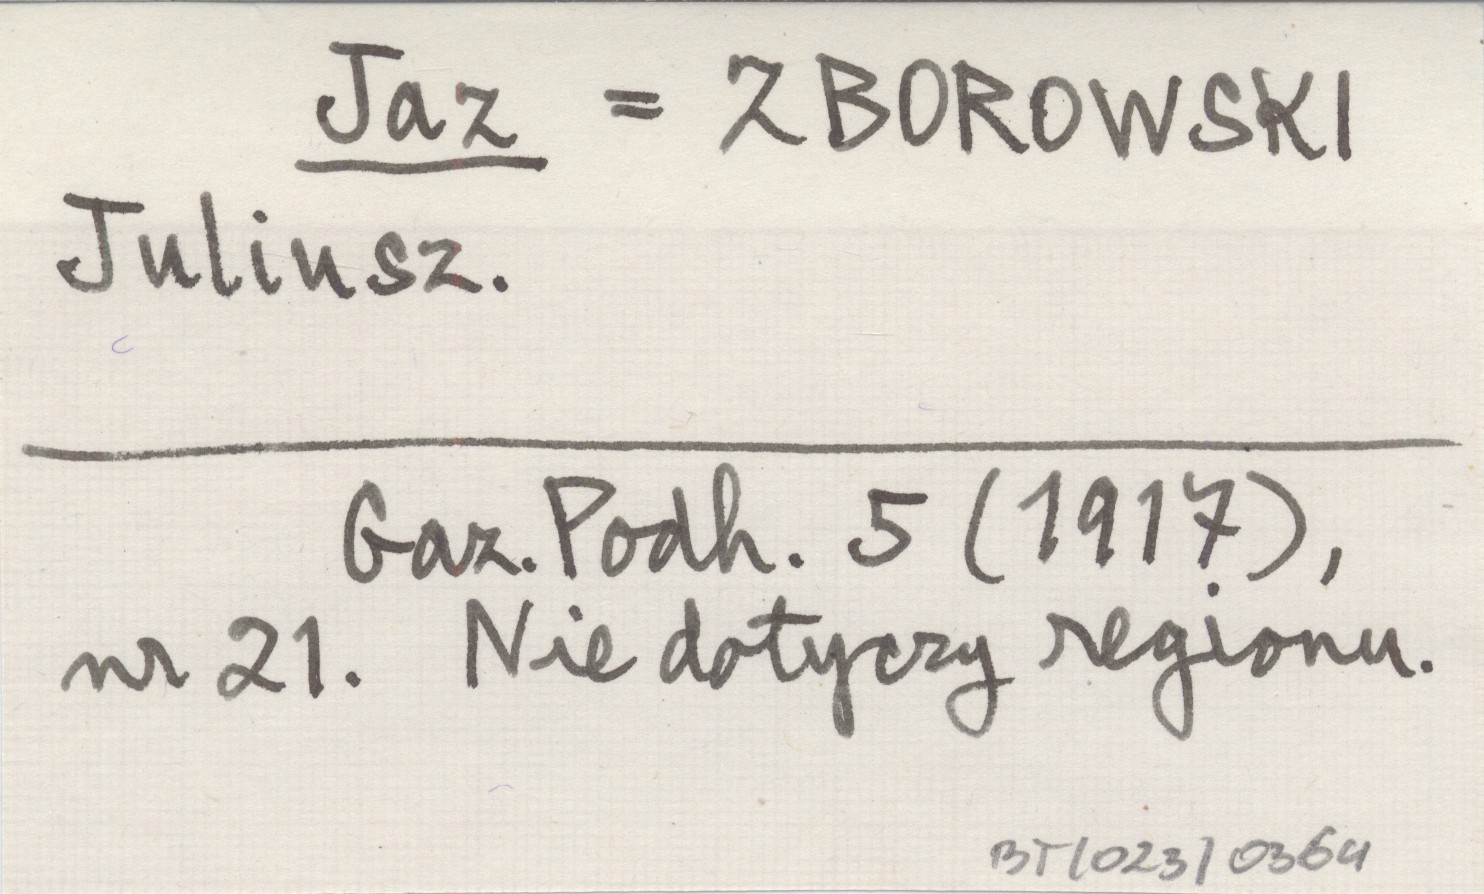 Jaz = ZBOROWSKI
Juliusz.
Gaz. Podh. 5 (1917),
nr 21. Nie dotyczy regionu.
BT/023/0364